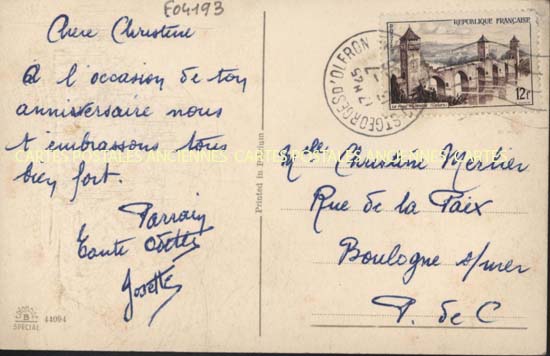 E04193
Chère Christine
A l'occasion de ton
anniversaire nous
t'embrassons tous
bien fort.
Parrain
Tante Odette
Josette
Printed in Belgium
SPECIAL
44094
REPUBLIQUE FRANÇAISE
12F
ST GEORGES D'OLERON
17 H25
CARTES POSTALES ANCIENNES CARTES POSTALES ANCIENNES CARTES POSTALES ANCIENNES
Melle Christine Mercier
Rue de la Paix
Boulogne s/mer
P. de C